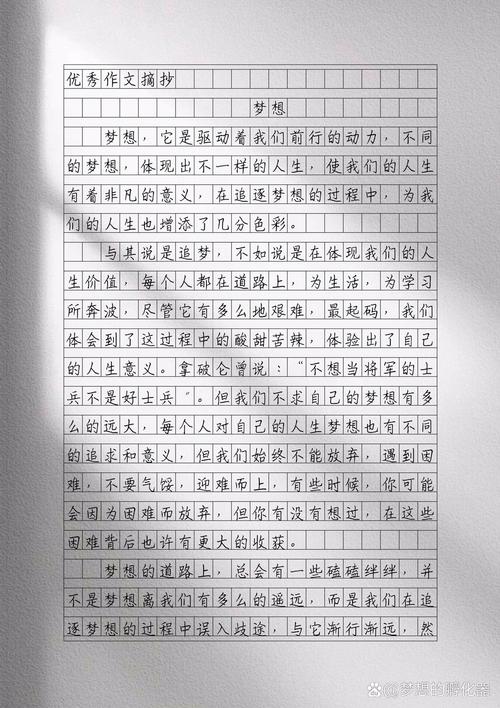 优秀作文摘抄
梦想
梦想，它是驱动着我们前行的动力，不同
的梦想，体现出不一样的人生，使我们的人生
有着非凡的意义，在追逐梦想的过程中，为我
们的人生也增添了几分色彩。
与其说是追梦，不如说是在体现我们的人
生价值，每个人都在道路上，为生活，为学习
所奔波，尽管它有多么地艰难，最起码，我们
体会到了这过程中的酸甜苦辣，体验出了自己
的人生意义。拿破仑曾说：“不想当将军的士
兵不是好士兵”。但我们不求自己的梦想有多
么的远大，每个人对自己的人生梦想也有不同
的追求和意义，但我们始终不能放弃，遇到困
难，不要气馁，迎难而上，有些时候，你可能
会因为困难而放弃，但你有没有想过，在这些
困难背后也许有更大的收获。
梦想的道路上，总会有一些磕磕绊绊，并
不是梦想离我们有多么的遥远，而是我们在追
逐梦想的过程中误入歧途，与它渐行渐远，然
梦想的孵化器